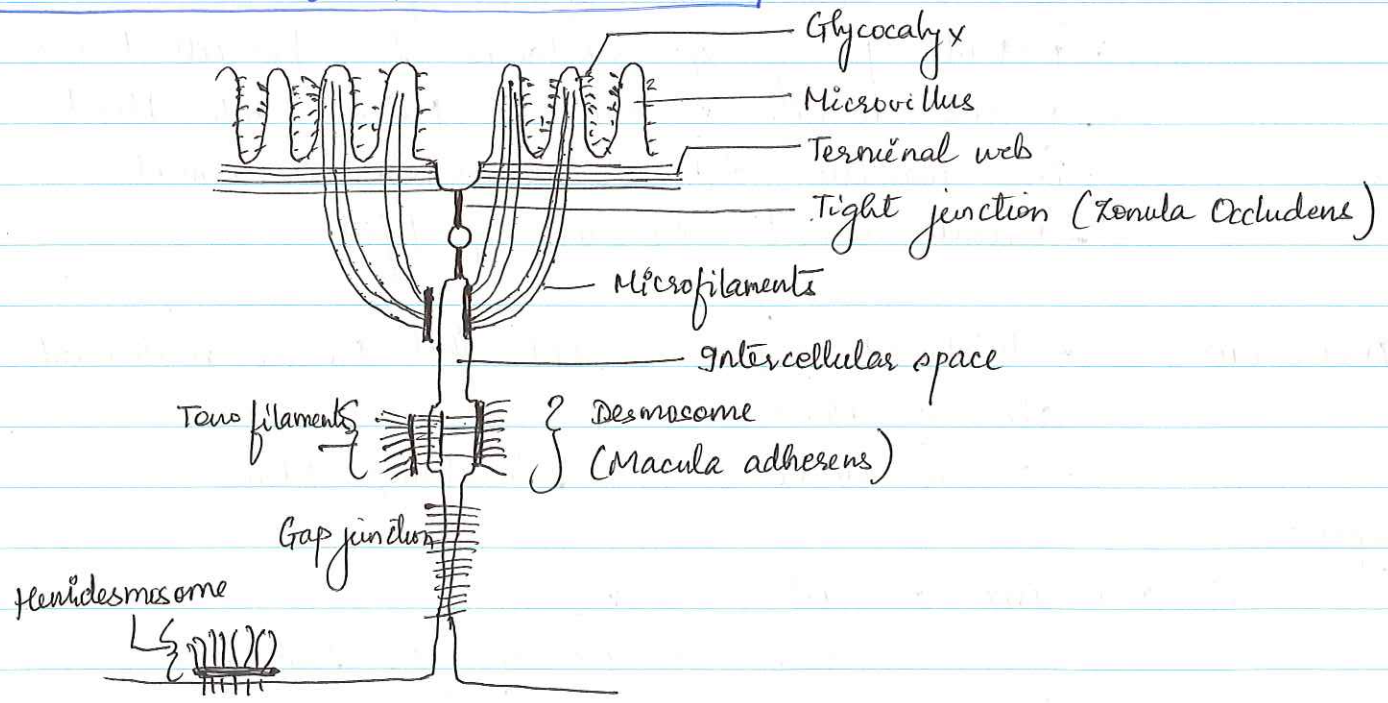 Glycocalyx
Microvillus
Terminal web
Tight junction (Zonula Occludens)
Microfilaments
Intercellular space
Tonofilaments
Desmosome
(Macula adherens)
Gap junction
Hemidesmosome